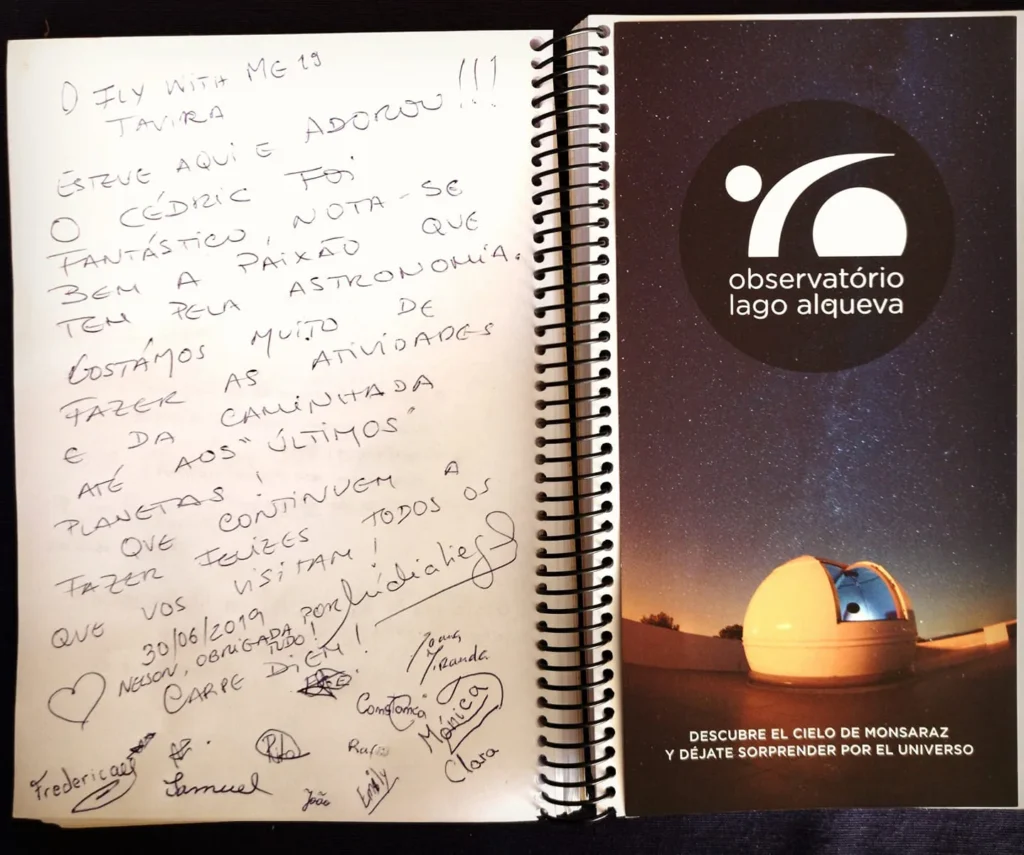 O FLY WITH ME 19
TAVIRA
ESTEVE AQUI E ADOROU!!!
O CÉDRIC FOI
FANTÁSTICO, NOTA-SE
BEM A PAIXÃO QUE
TEM PELA ASTRONOMIA.
GOSTÁMOS MUITO DE
FAZER AS ATIVIDADES
E DA CAMINHADA
ATÉ AOS "ÚLTIMOS"
PLANETAS!
QUE CONTINUEM A
FAZER FELIZES TODOS OS
QUE VOS VISITAM!
30/06/2019
NELSON, OBRIGADA POR
TUDO!
CARPE DIEM!
Joana
Miranda
Constança
Mónica
Clara
Rita
Samuel
João
Emily
observatório
lago alqueva
DESCUBRE EL CIELO DE MONSARAZ
Y DÉJATE SORPRENDER POR EL UNIVERSO